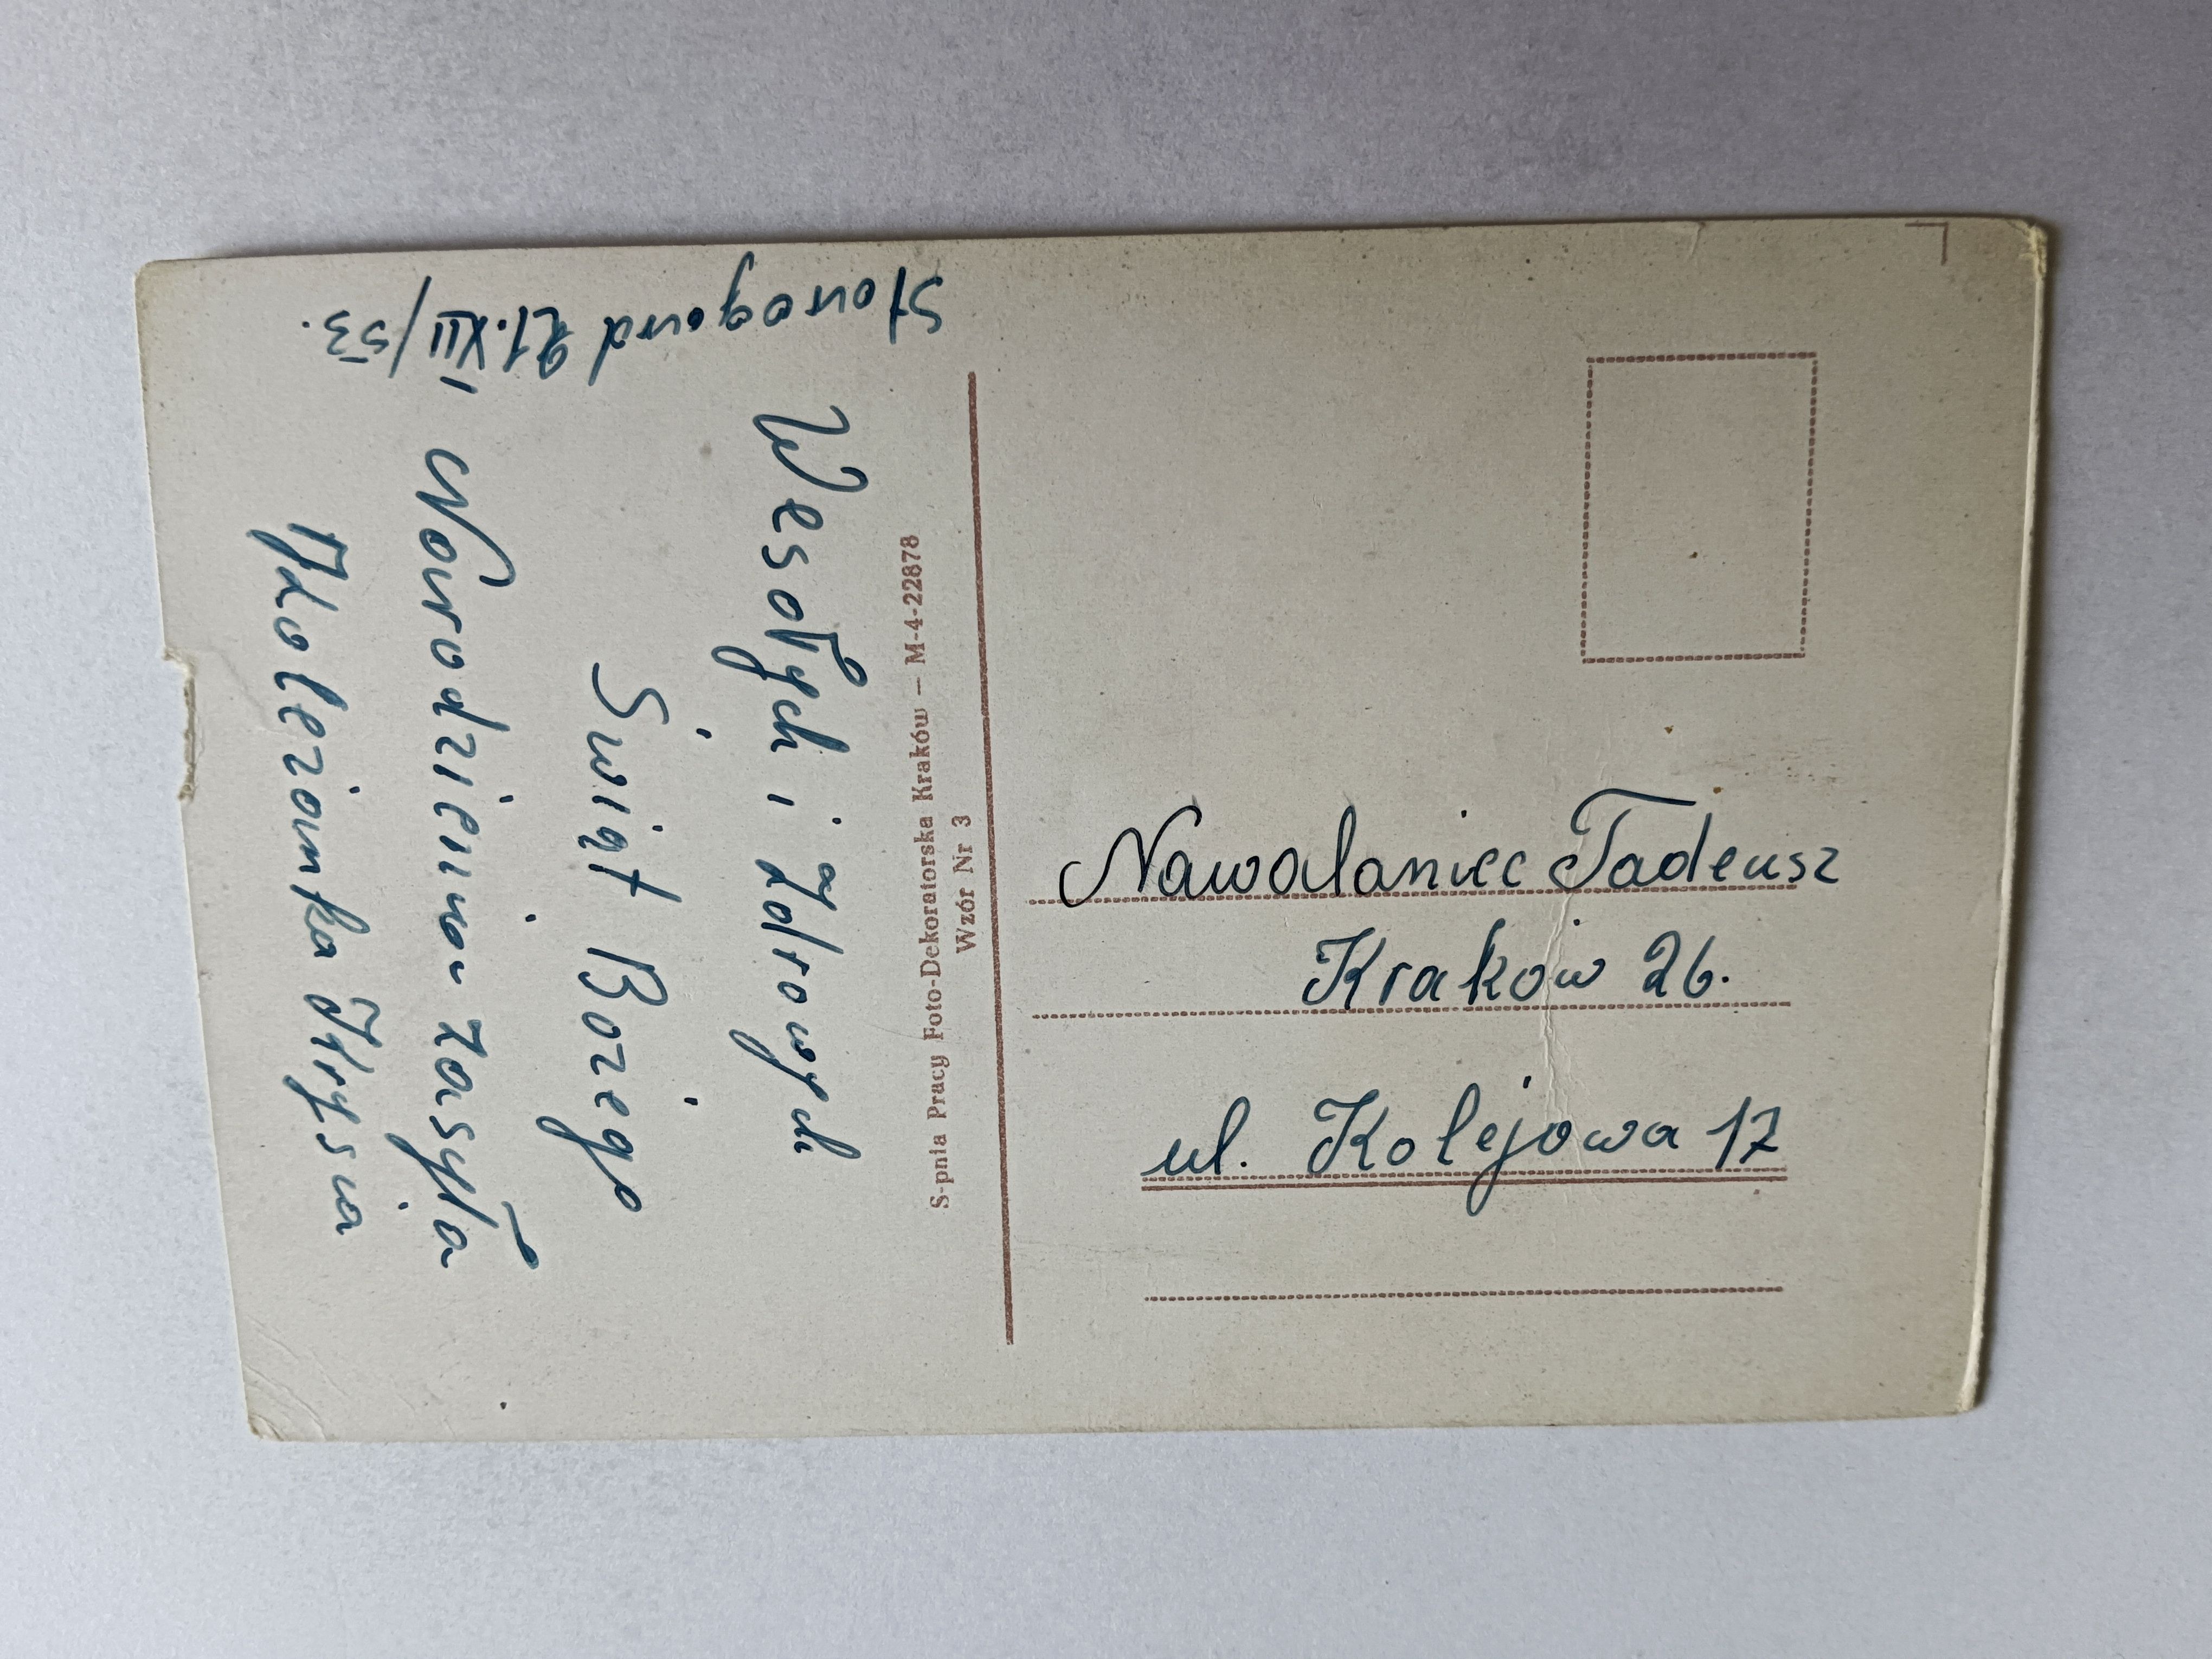 Starogard 21.XII/53.
Wesołych i Zdrowych
Świąt Bożego
Narodzenia zasyła
Koleżanka Krysia
S-pnia Pracy Foto-Dekoratorska Kraków — M-4-22878
Wzór Nr 3
Nawalaniec Tadeusz
Kraków 26.
ul. Kolejowa 17